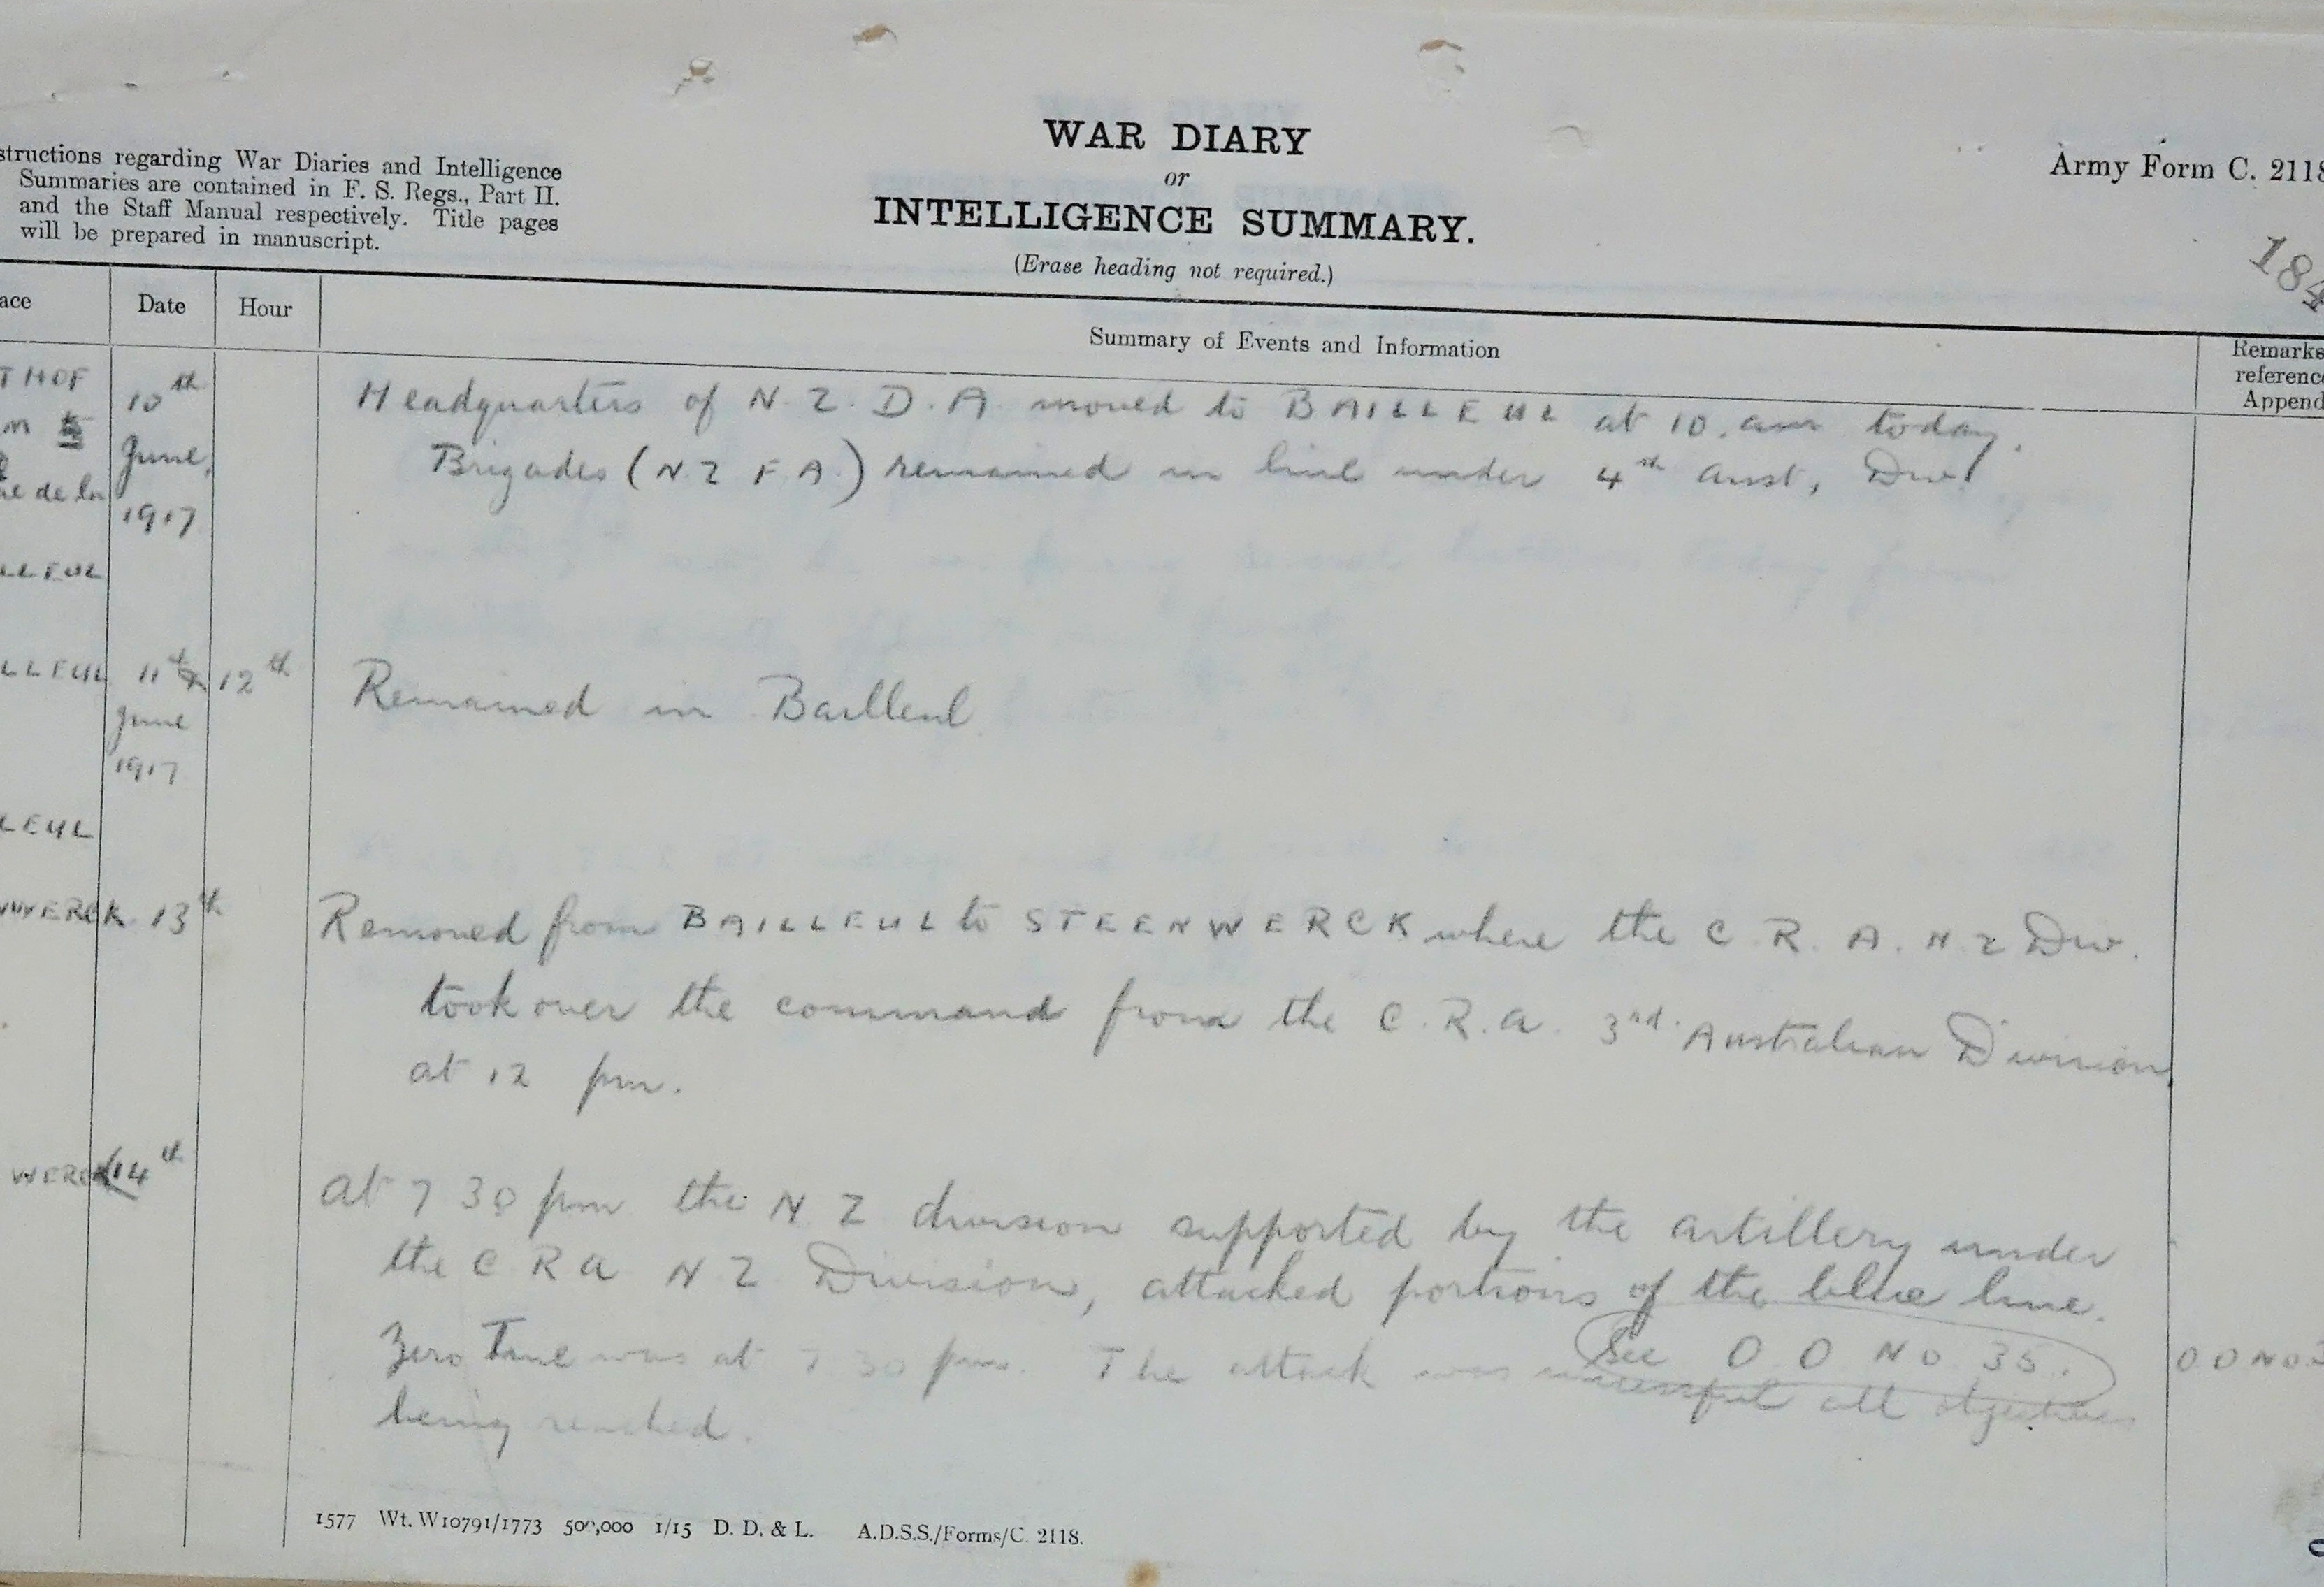 WAR DIARY
or
INTELLIGENCE SUMMARY.
(Erase heading not required.)
Army Form C. 2118
184
structions regarding War Diaries and Intelligence
Summaries are contained in F. S. Regs., Part II.
and the Staff Manual respectively. Title pages
will be prepared in manuscript.
ace Date Hour Summary of Events and Information
Remarks
reference
Append
T HOF 10th Headquarters of N.Z.D.A moved to BAILLEUL at 10.am today.
June, Brigades (N Z F A.) remained in line under 4th Aust, Div.
de la
1917
LLEUL
LLEUL 11th 12th Remained in Bailleul
June
1917
LEUL
WERCK 13th Removed from BAILLEUL to STEENWERCK where the C. R. A. N Z Div.
took over the command from the C.R.A. 3rd. Australian Division
at 12 pm.
WERCK 14th At 7 30 pm the N Z division supported by the artillery under
the C R A N Z Division, attacked portions of the blue line.
See O O No 35. O O No 3
Zero Time was at 7 30 pm. The attack was successful all objectives
being reached.
1577 Wt. W10791/1773 500,000 1/15 D. D. & L. A.D.S.S./Forms/C. 2118.